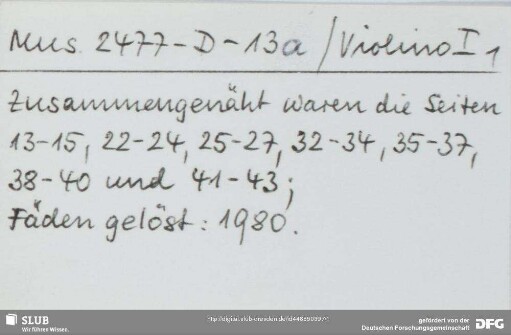 Mus. 2477-D-13a / Violino I 1
Zusammengenäht waren die Seiten
13-15, 22-24, 25-27, 32-34, 35-37,
38-40 und 41-43;
Fäden gelöst: 1980.
SLUB
Wir führen Wissen.
gefördert von der
Deutschen Forschungsgemeinschaft
DFG